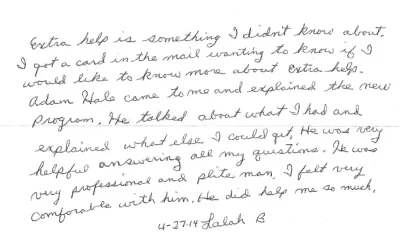 Extra help is something I didn't know about.
I got a card in the mail wanting to know if I
would like to know more about extra help.
Adam Hala came to me and explained the new
program. He talked about what I had and
explained what else I could get. He was very
helpful answering all my questions. He was
very professional and plite man. I felt very
comforable with him. He did help me so much.
4-27-14 Lalah B